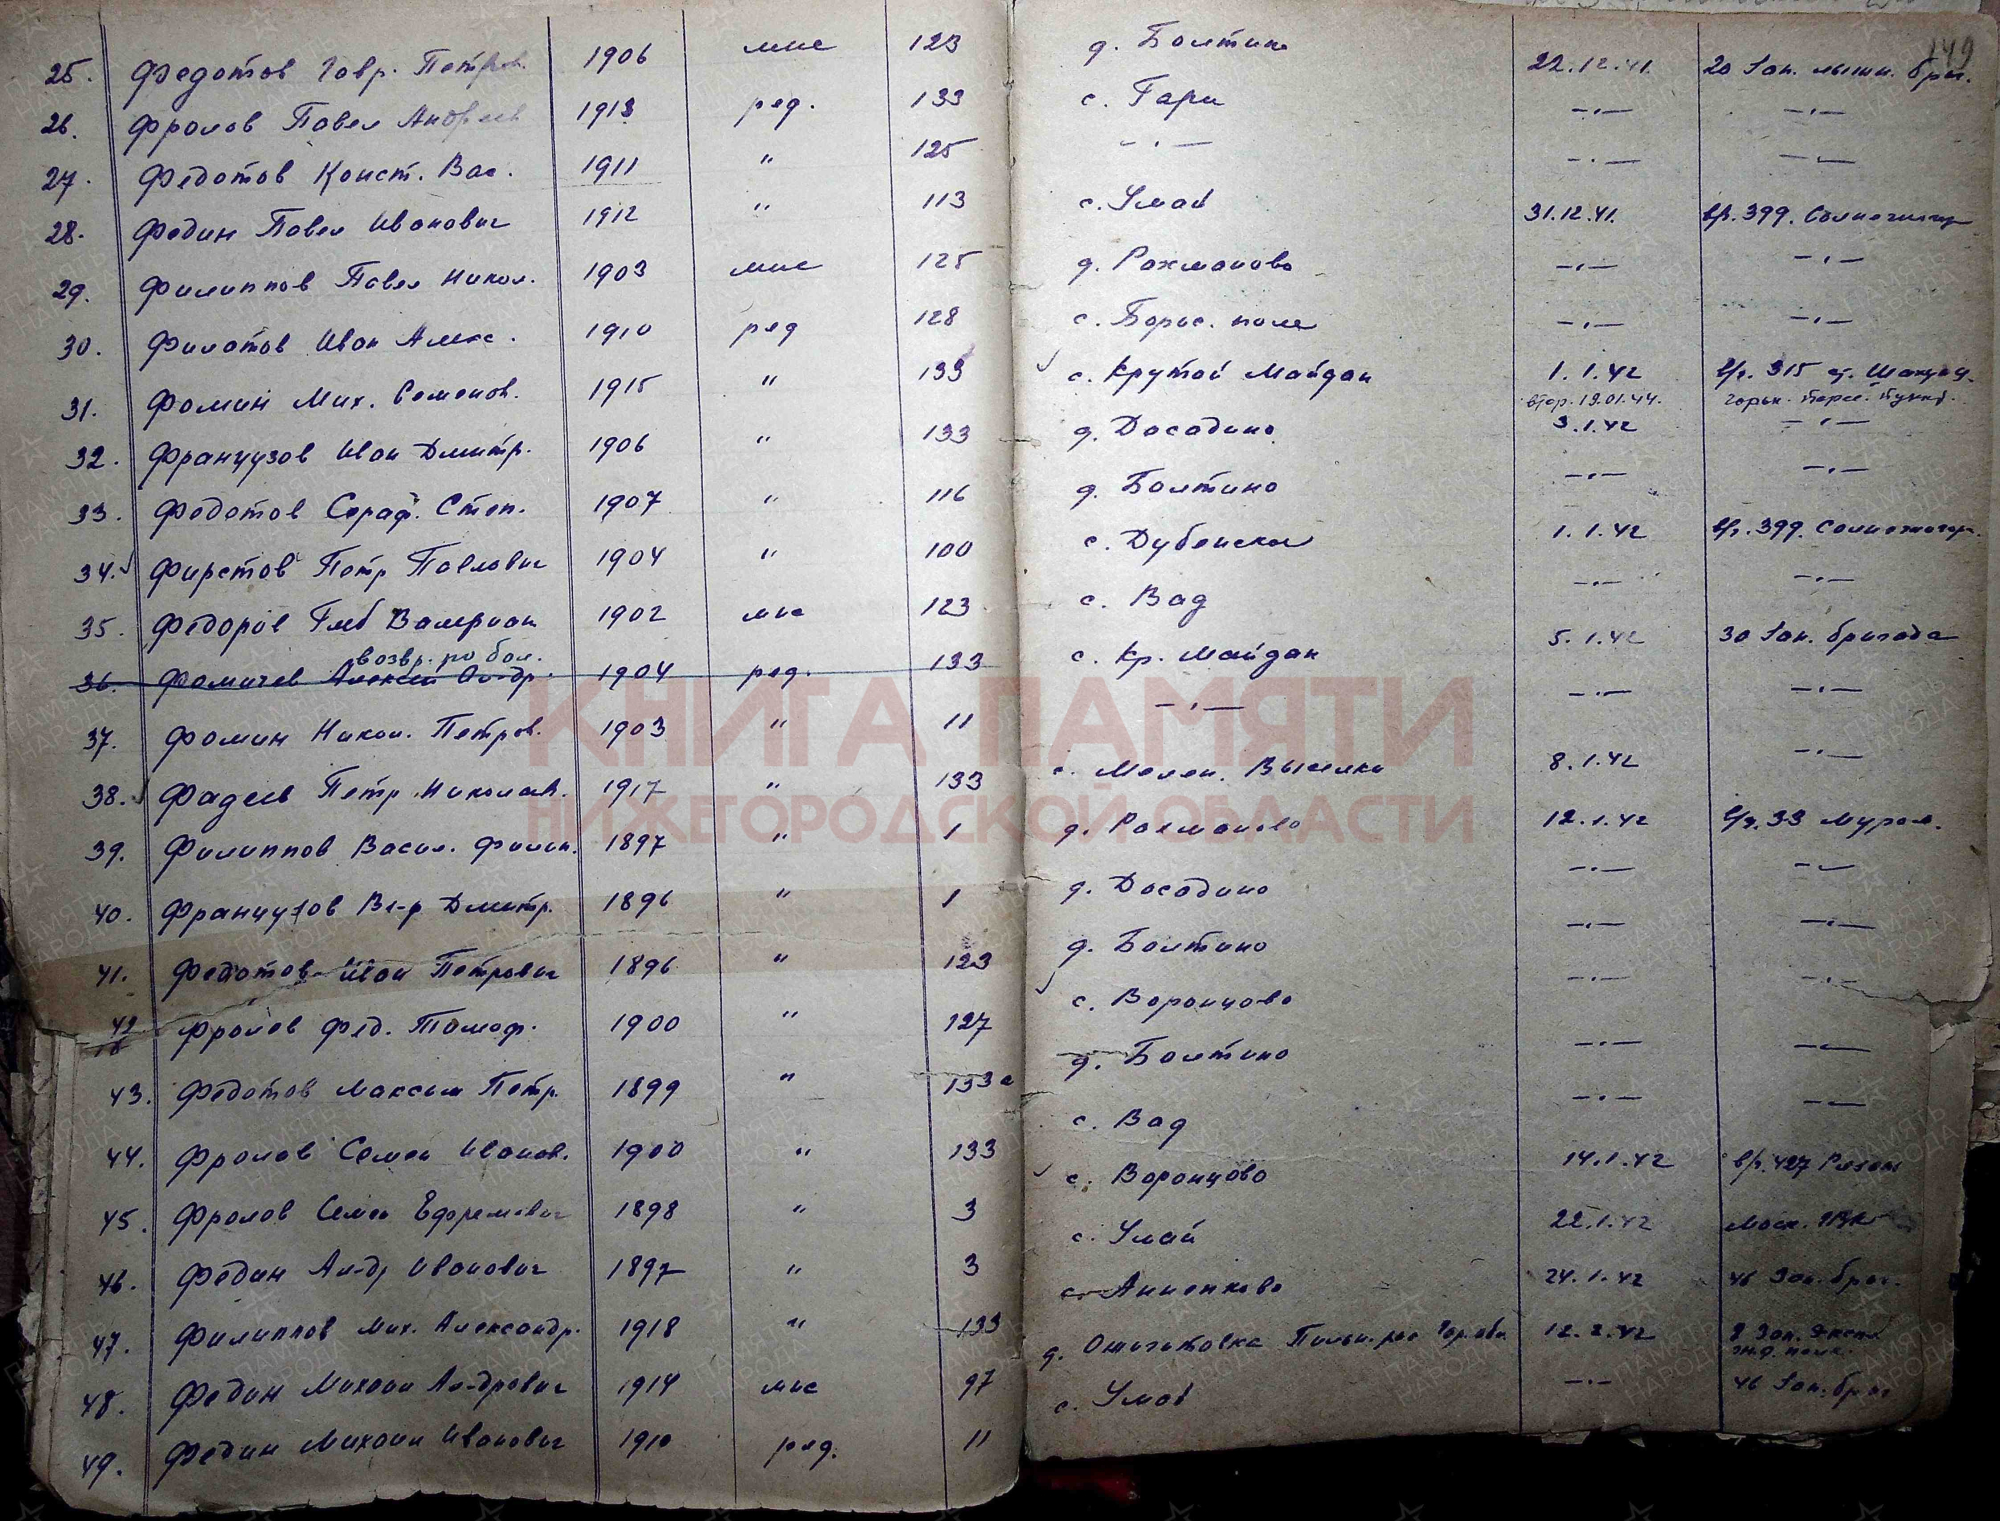 149
25. Федотов Гавр. Петров. 1906 мнс 123 д. Болтино 22.12.41. 20 Зап. лыжн. бриг.
26. Фролов Павел Андреев 1913 ряд. 133 с. Гари —"— —"—
27. Федотов Конст. Вас. 1911 " 125 —"— —"— —"—
28. Федин Павел Иванович 1912 " 113 с. Умай 31.12.41. в/ч. 399.
29. Филиппов Павел Никол. 1903 мнс 125 д. Рахманово —"— —"—
30. Филатов Иван Алекс. 1910 ряд 128 с. Борис. поле —"— —"—
31. Фомин Мих. Семенов. 1915 " 133 с. Крутой Майдан 1.1.42 в/ч. 315 ст.
втор. 19.01.44. Горьк. Перес. Пункт.
32. Французов Иван Дмитр. 1906 " 133 д. Досадино 3.1.42 —"—
33. Федотов Сераф. Степ. 1907 " 116 д. Болтино —"— —"—
34. Фирстов Петр Павлович 1904 " 100 с. Дубенское 1.1.42 в/ч. 399. Солнечногор.
35. Федоров Глеб Валериан 1902 мнс 123 с. Вад —"— —"—
возвр. по бол.
36. Фомичев Алексей Ан-др. 1904 ряд. 133 с. Кр. Майдан 5.1.42 30 Зап. бригада
37. Фомин Никол. Петров. 1903 " 11 —"— —"— —"—
38. Фадеев Петр Николаев. 1917 " 133 с. Мелен. Выселки 8.1.42 —"—
39. Филиппов Васил. Филип. 1897 " 1 д. Рахманово 12.1.42 в/ч. 33 Муром.
40. Французов Вл-р Дмитр. 1896 " 1 д. Досадино —"— —"—
41. Федотов Иван Петрович 1896 " 123 д. Болтино —"— —"—
42 Фролов Фед. Тимоф. 1900 " 127 с. Воронцово —"— —"—
43. Федотов Максим Петр. 1899 " 133а д. Болтино —"— —"—
44. Фролов Семен Иванов. 1900 " 133 с. Вад —"— —"—
45. Фролов Семен Ефремович 1898 " 3 с. Воронцово 14.1.42 в/ч. 427 Рязань
46. Федин Ан-др Иванович 1897 " 3 с. Умай 22.1.42 Моск.
47. Филиппов Мих. Александр. 1918 " 133 с. Анненково 24.1.42 46 Зап. бриг.
48. Федин Михаил Ан-дрович 1914 мнс 97 д. Пильн. р-на Гор. обл. 12.2.42 8 Зап.
ж.д. полк.
49. Федин Михаил Иванович 1910 ряд. 11 с. Умай —"— 46 Зап. бриг
КНИГА ПАМЯТИ
НИЖЕГОРОДСКОЙ ОБЛАСТИ